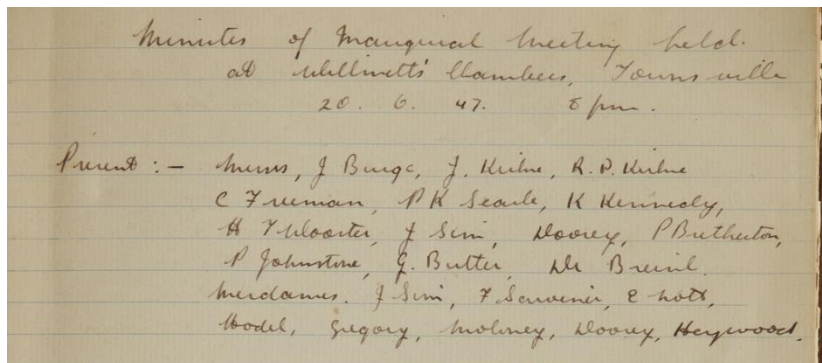 Minutes of Inaugural Meeting held.
at Willmett's Chambers, Townsville
20. 6. 47. 8 pm.
Present :- Messrs, J Burge, J. Kirline, R. P. Kirline
C Freeman, P K Searle, K Kennedy,
H T Wooster, J Sim, Doorey, P Brotherton,
P Johnstone, G. Butter, Dr Breinl.
Mesdames. J Sim, F Scrivener, E Nott,
Hodel, Gregory, Moloney, Doorey, Heywood.